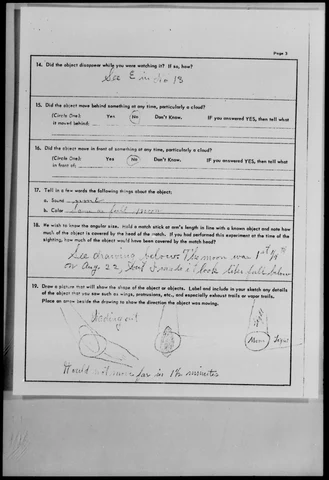 Page 3
14. Did the object disappear while you were watching it? If so, how?
See E in No 13
15. Did the object move behind something at any time, particularly a cloud?
(Circle One): Yes No Don't Know. IF you answered YES, then tell what
it moved behind:
16. Did the object move in front of something at any time, particularly a cloud?
(Circle One): Yes No Don't Know. IF you answered YES, then tell what
in front of:
17. Tell in a few words the following things about the object:
a. Sound
b. Color Same as full moon
18. We wish to know the angular size. Hold a match stick at arm's length in line with a known object and note how
much of the object is covered by the head of the match. If you had performed this experiment at the time of the
sighting, how much of the object would have been covered by the match head?
See drawing below. The moon was 1st
on Aug 22, but I made it look like full below
19. Draw a picture that will show the shape of the object or objects. Label and include in your sketch any details
of the object that you saw such as wings, protrusions, etc., and especially exhaust trails or vapor trails.
Place an arrow beside the drawing to show the direction the object was moving.
Moon
Would not move far in 1½ minutes